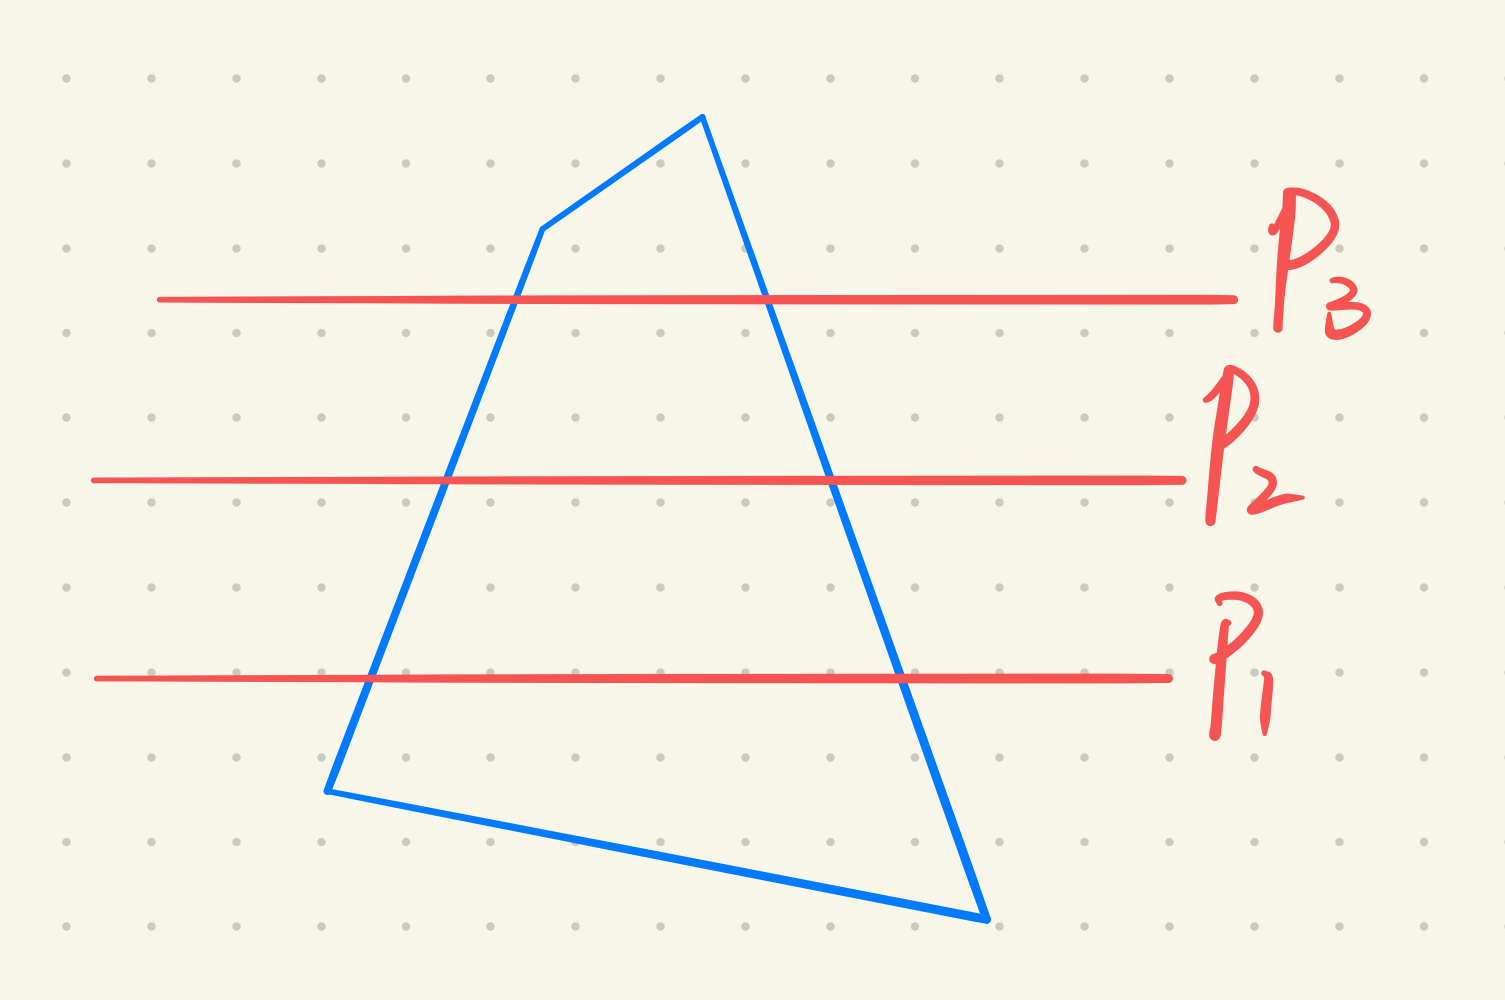 P3
P2
P1